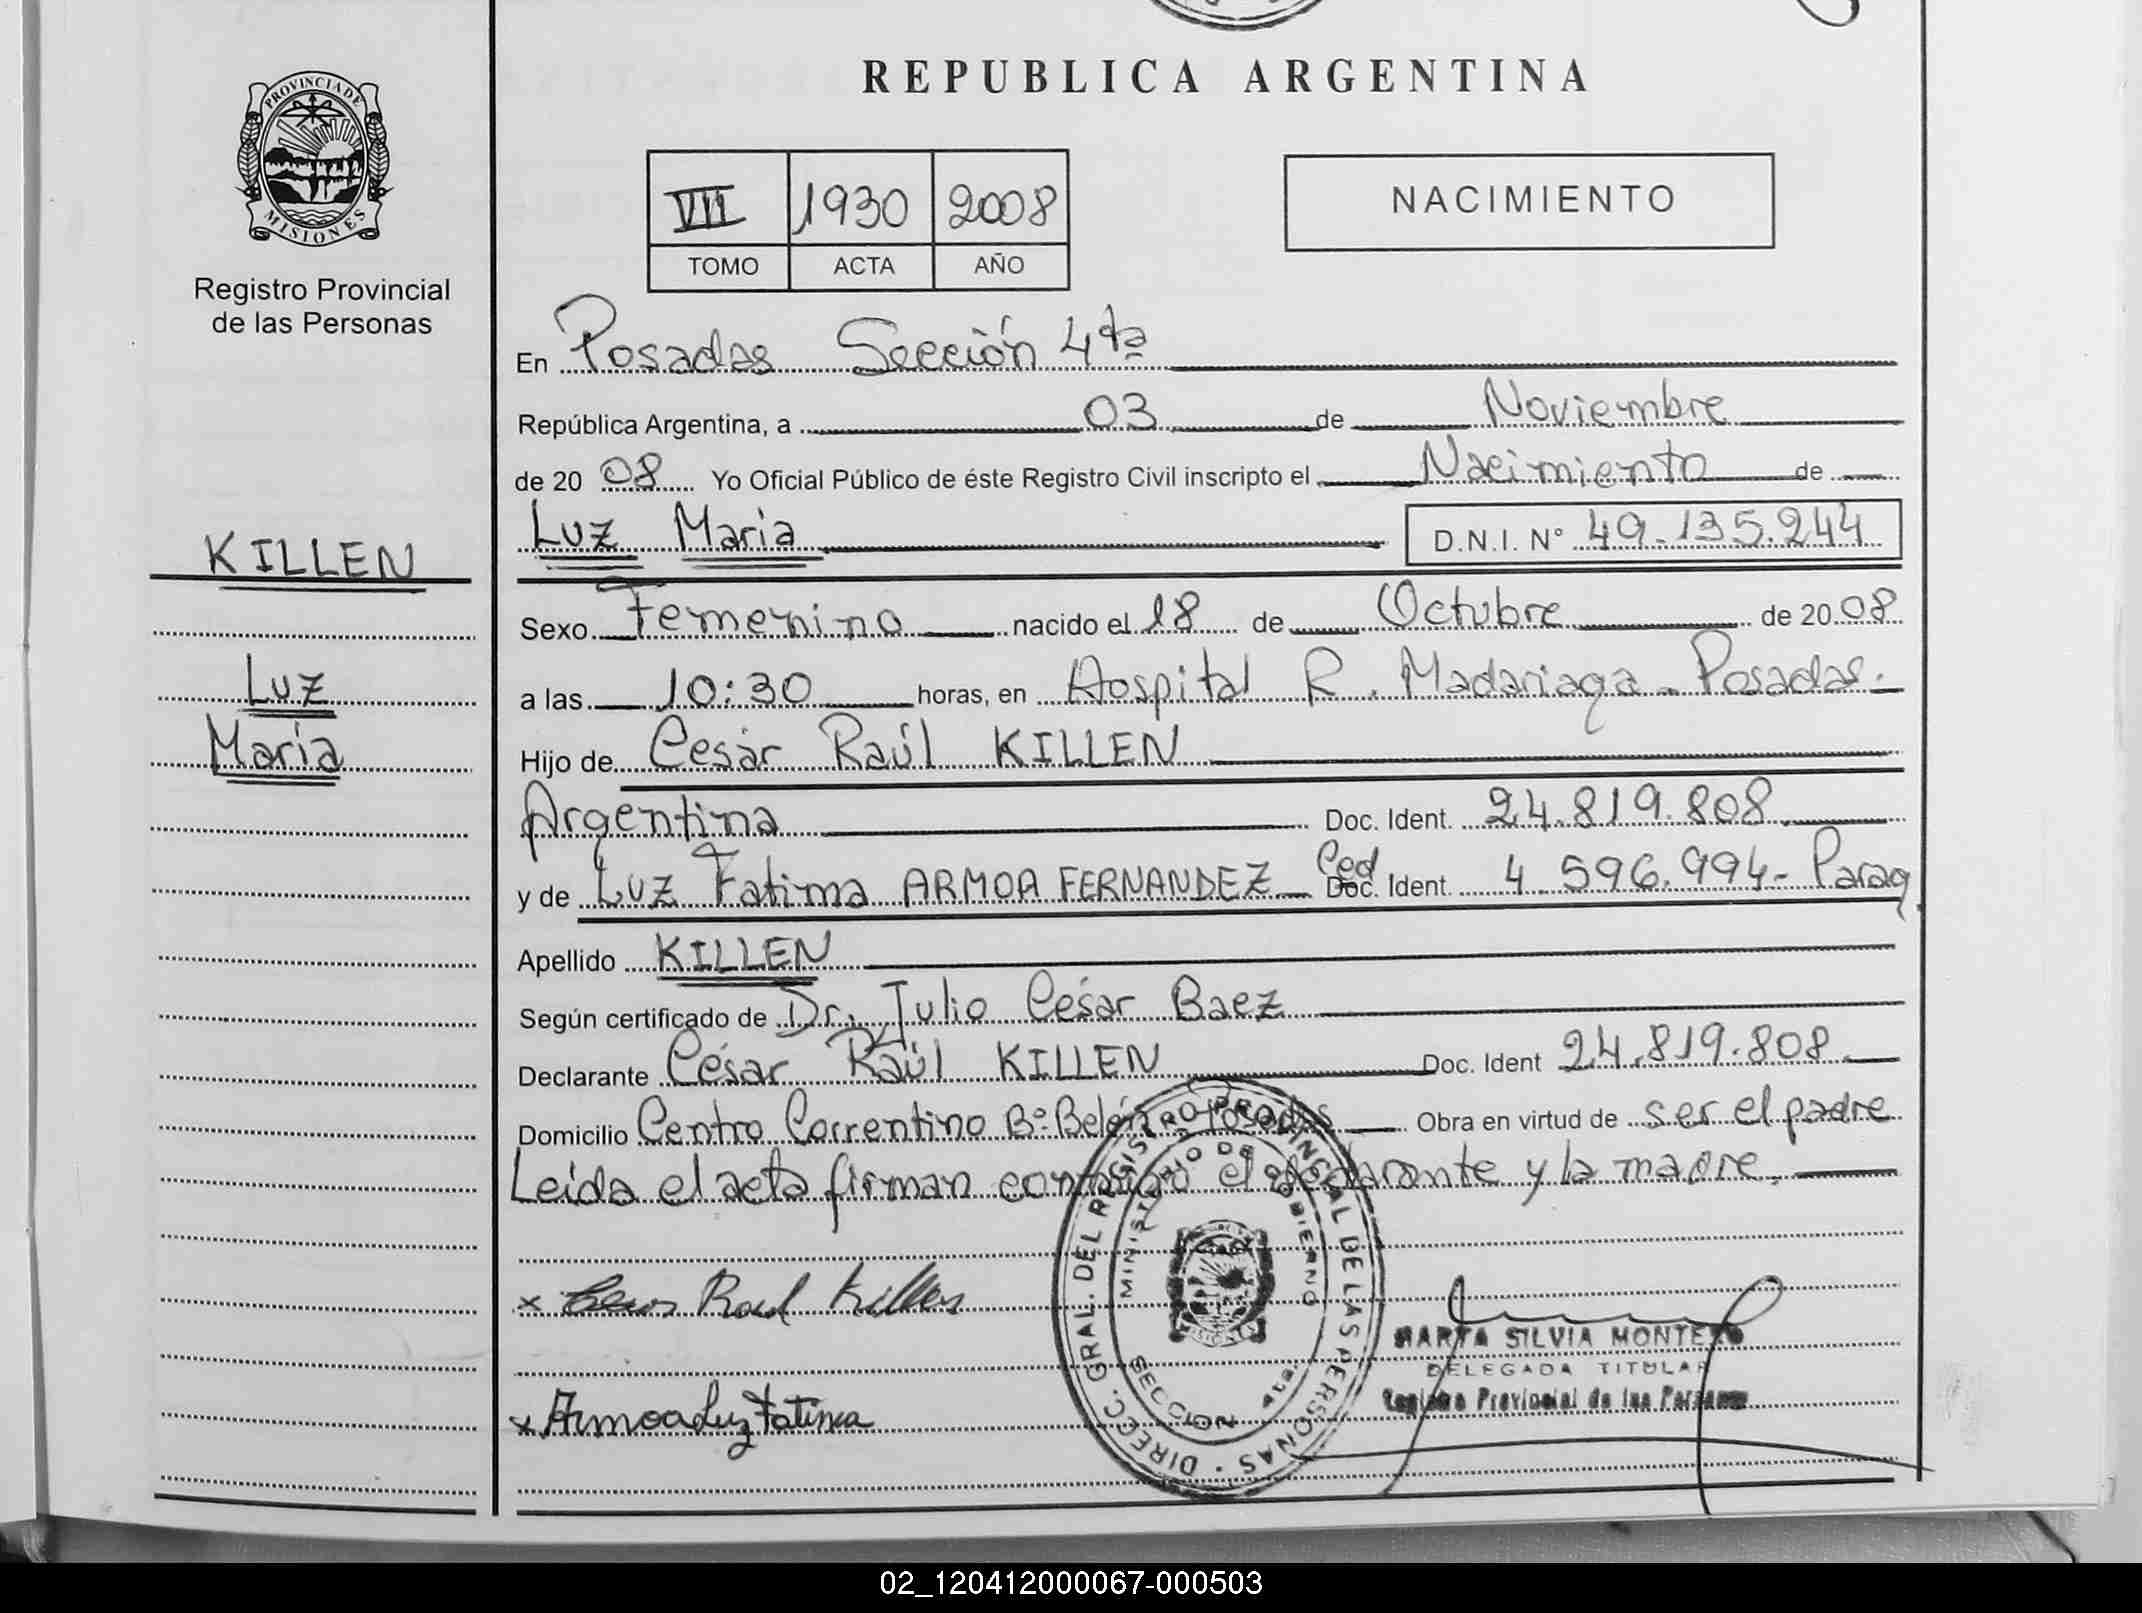 REPUBLICA ARGENTINA
PROVINCIA DE
MISIONES
Registro Provincial
de las Personas
VII 1930 2008
TOMO ACTA AÑO
NACIMIENTO
En Posadas Sección 4ta
República Argentina, a 03 de Noviembre
de 20 08 Yo Oficial Público de éste Registro Civil inscripto el Nacimiento de
Luz Maria D.N.I. Nº 49.135.244
KILLEN
Luz
Maria
Sexo Femenino nacido el 18 de Octubre de 20 08
a las 10:30 horas, en Hospital R. Madariaga - Posadas.
Hijo de Cesar Raúl KILLEN
Argentina Doc. Ident. 24.819.808
y de Luz Fatima ARMOA FERNANDEZ Ced Doc. Ident. 4 596.994- Parag
Apellido KILLEN
Según certificado de Dr. Julio César Baez
Declarante César Raúl KILLEN Doc. Ident 24.819.808
Domicilio Centro Correntino Bº Belén Posadas Obra en virtud de ser el padre
Leida el acta firman conmigo el declarante y la madre.
x Cesar Raul Killen
x Armoa Luz Fatima
DIRECC. GRAL. DEL REGISTRO PROVINCIAL DE LAS PERSONAS
MINISTERIO DE GOBIERNO
SECCION 4ta.
MARTA SILVIA MONTERO
DELEGADA TITULAR
Registro Provincial de las Personas
02_120412000067-000503